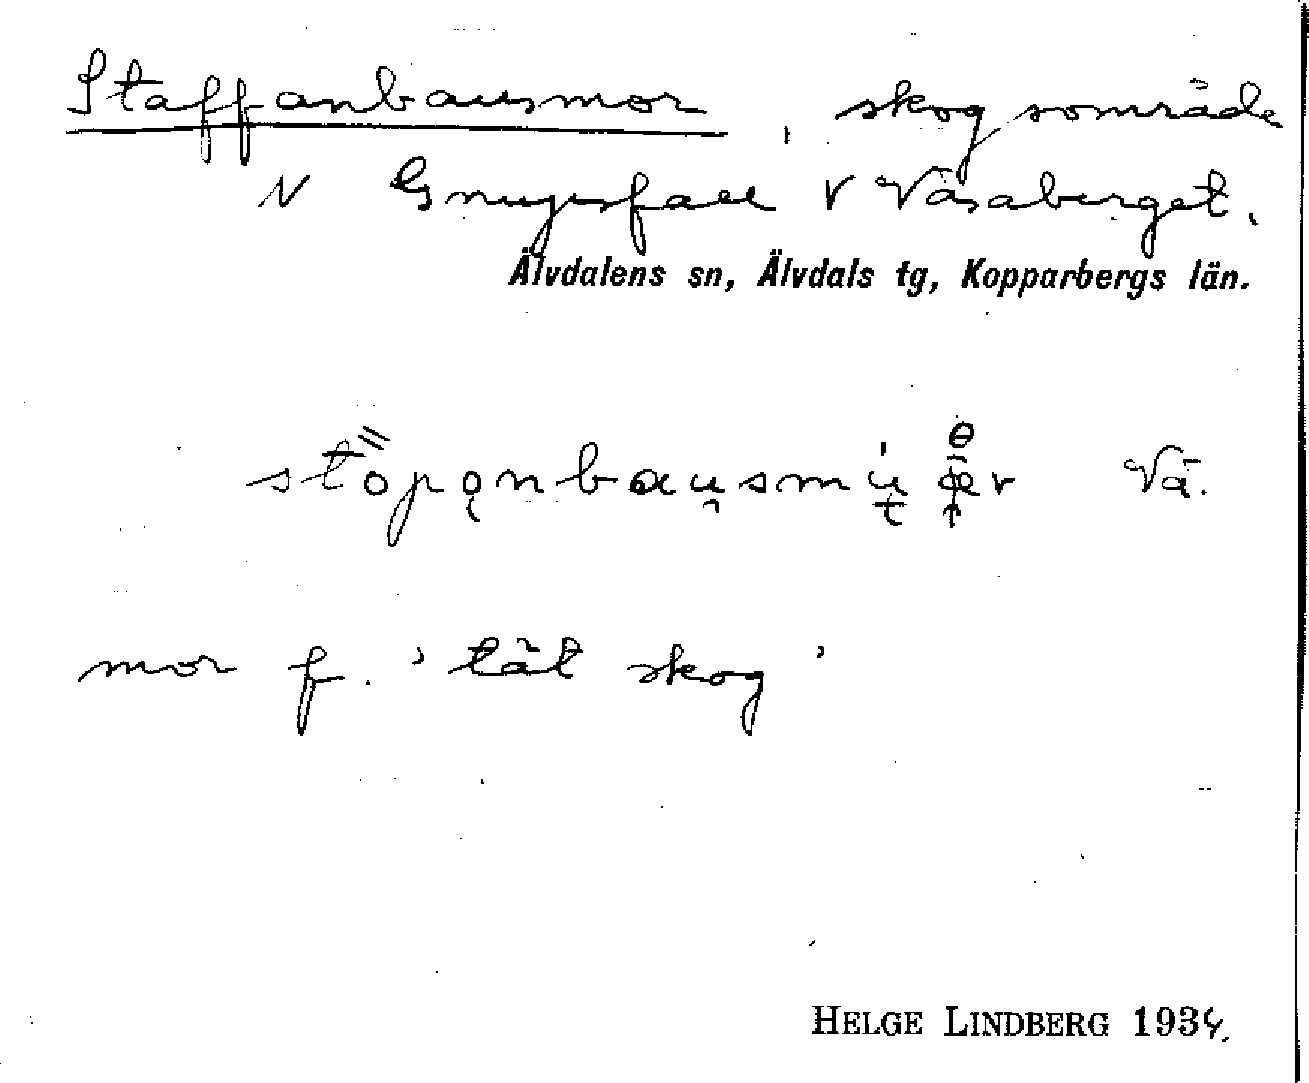 Staffanbausmor, skogsområde
N Gnupesfall V Våsaberget.
Älvdalens sn, Älvdals tg, Kopparbergs län.
Vå.
mor f. 'tät skog'
HELGE LINDBERG 1934.